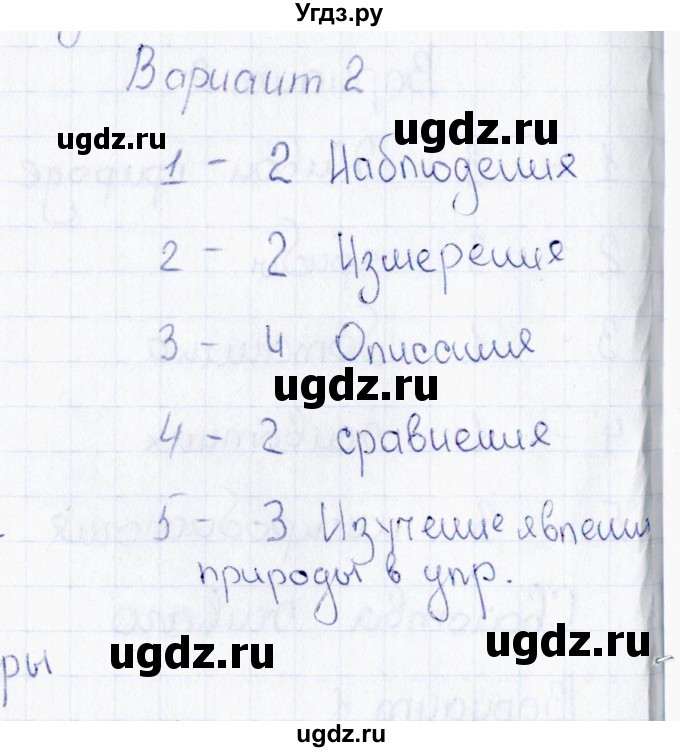 Угдз.ру
Вариант 2
ugdz.ru ugdz.ru
1 - 2 Наблюдения
2 - 2 Измерения
3 - 4 Описания
ugdz.ru
4 - 2 сравнения
5 - 3 Изучение явлени
природы в упр.
ugdz.ru ugdz.ru
ры
ugdz.ru